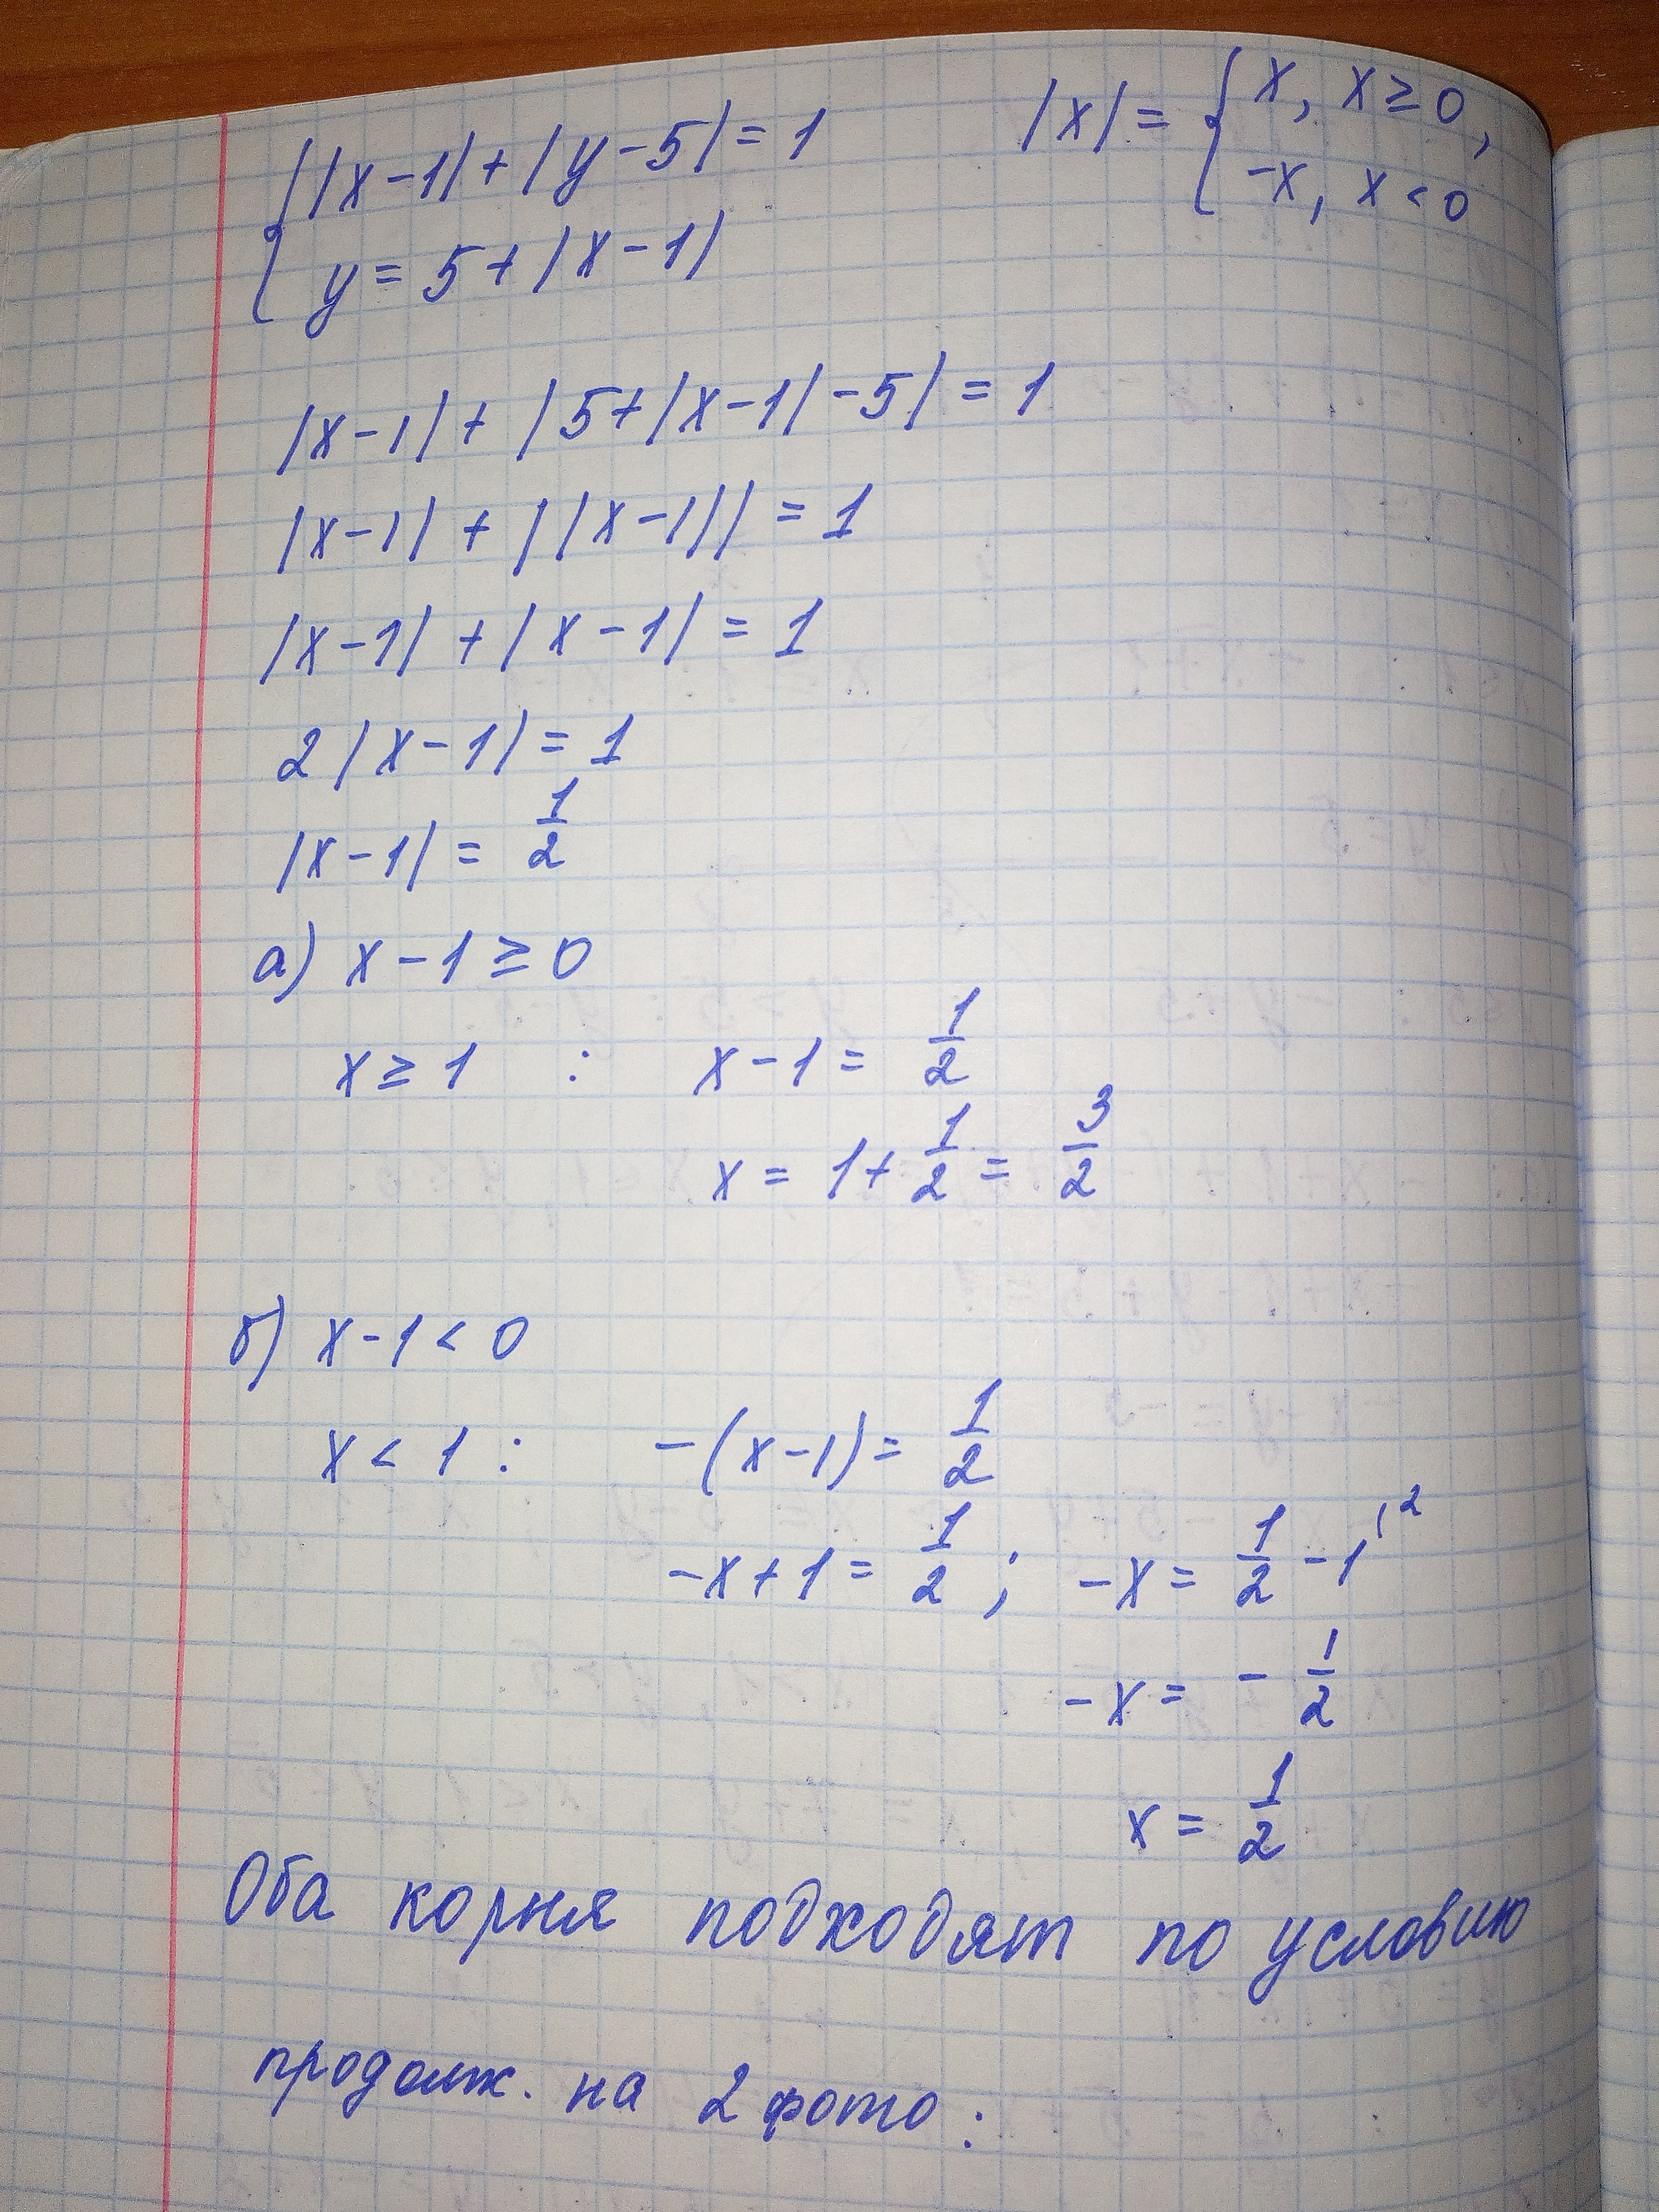 { |x-1| + |y-5| = 1
y = 5 + |x-1|
|x| = { x, x ≥ 0,
-x, x < 0
|x-1| + |5+|x-1|-5| = 1
|x-1| + ||x-1|| = 1
|x-1| + |x-1| = 1
2|x-1| = 1
|x-1| = 1/2
а) x-1 ≥ 0
x ≥ 1 : x-1 = 1/2
x = 1+1/2 = 3/2
б) x-1 < 0
x < 1 : -(x-1) = 1/2
-x+1 = 1/2 ; -x = 1/2 - 1 ^{12}
-x = - 1/2
x = 1/2
Оба корня подходят по условию
продолж. на 2 фото :